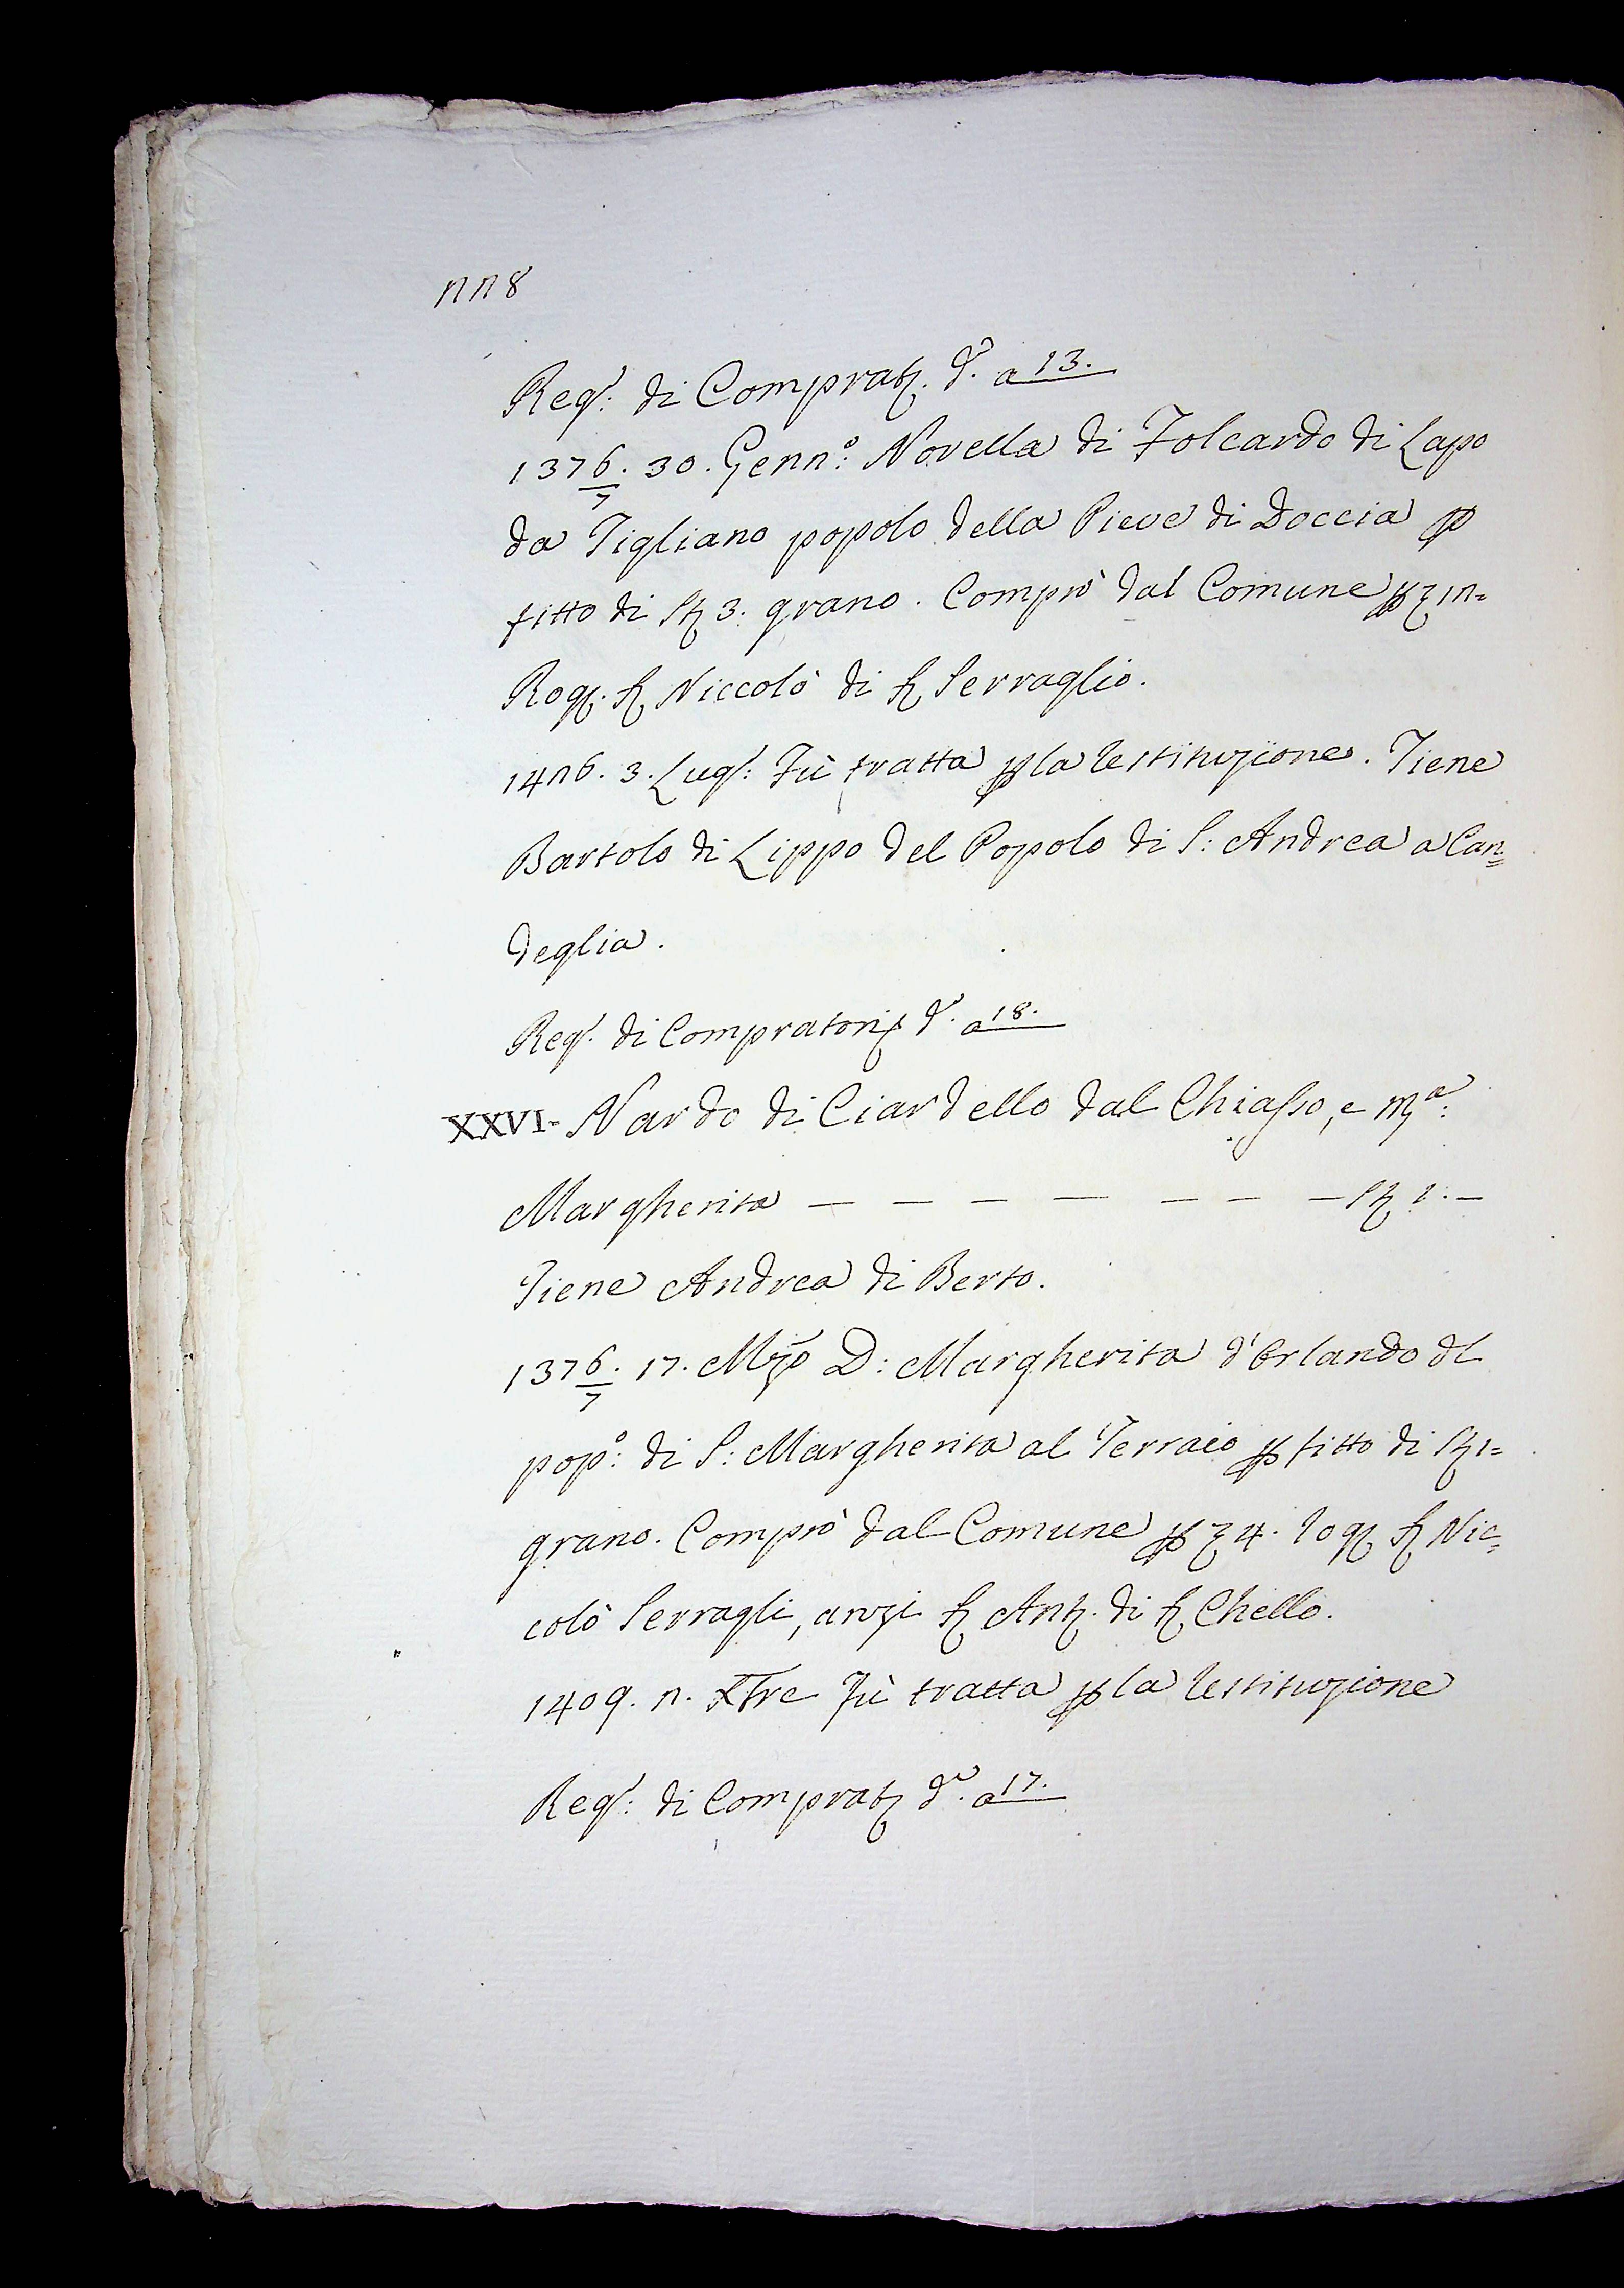 228
Reg.º: di Comprat.i d.º a 13.
1376/7. 30. Genn.º: Novella di Folcardo di Lapo
da Tigliano popolo della Pieve di Doccia p
fitto di St 3. grano. Comprò dal Comune p 12=
Rog. S. Niccolò di S. Serraglio.
1426. 3. Lug.º: Fù tratta p la restituzione. Tiene
Bartolo di Lippo del Popolo di S: Andrea a Can=
deglia.
Reg.º di Compratori d.º a 18.
XXVI- Nardo di Ciardello dal Chiasso, e M.a:
Margherita — — — — — — — St 1. —
Tiene Andrea di Berto.
1376/7. 17. Mzo D: Margherita d'Orlando dl
pop.º: di S: Margherita al Terraio p fitto di St 1=
grano. Comprò dal Comune p 4. rog S. Nic=
colò Serragli, anzi S. Ant. di S. Chello.
1409. 2. Xbre Fù tratta p la restituzione
Reg.º: di Comprat.i d.º a 17.